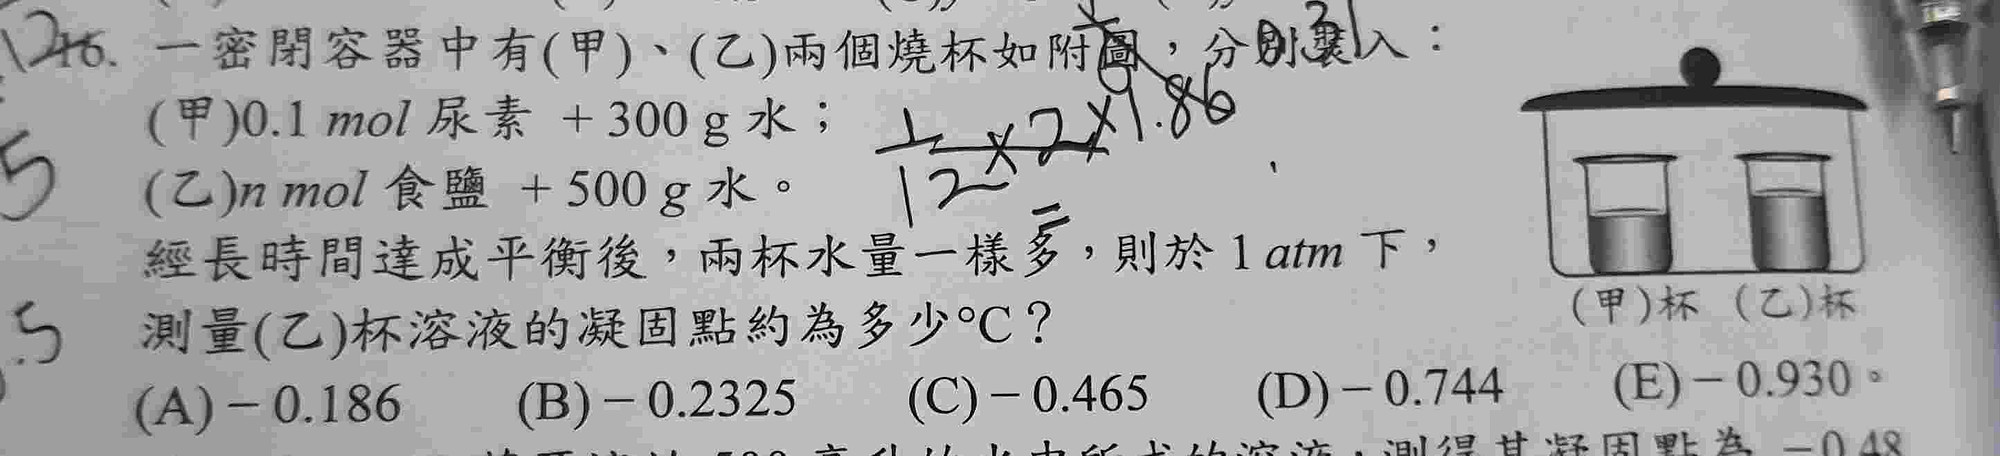 46. 一密閉容器中有(甲)、(乙)兩個燒杯如附圖，分別裝入：
(甲)0.1 mol 尿素 + 300 g 水；
1/12 × 2 × 1.86
=
(乙)n mol 食鹽 + 500 g 水。
5
經長時間達成平衡後，兩杯水量一樣多，則於 1 atm 下，
測量(乙)杯溶液的凝固點約為多少°C？
.5
(甲)杯 (乙)杯
(A)－0.186 (B)－0.2325 (C)－0.465 (D)－0.744 (E)－0.930。
500 毫升的水中所成的溶液，測得其凝固點為 －0.48